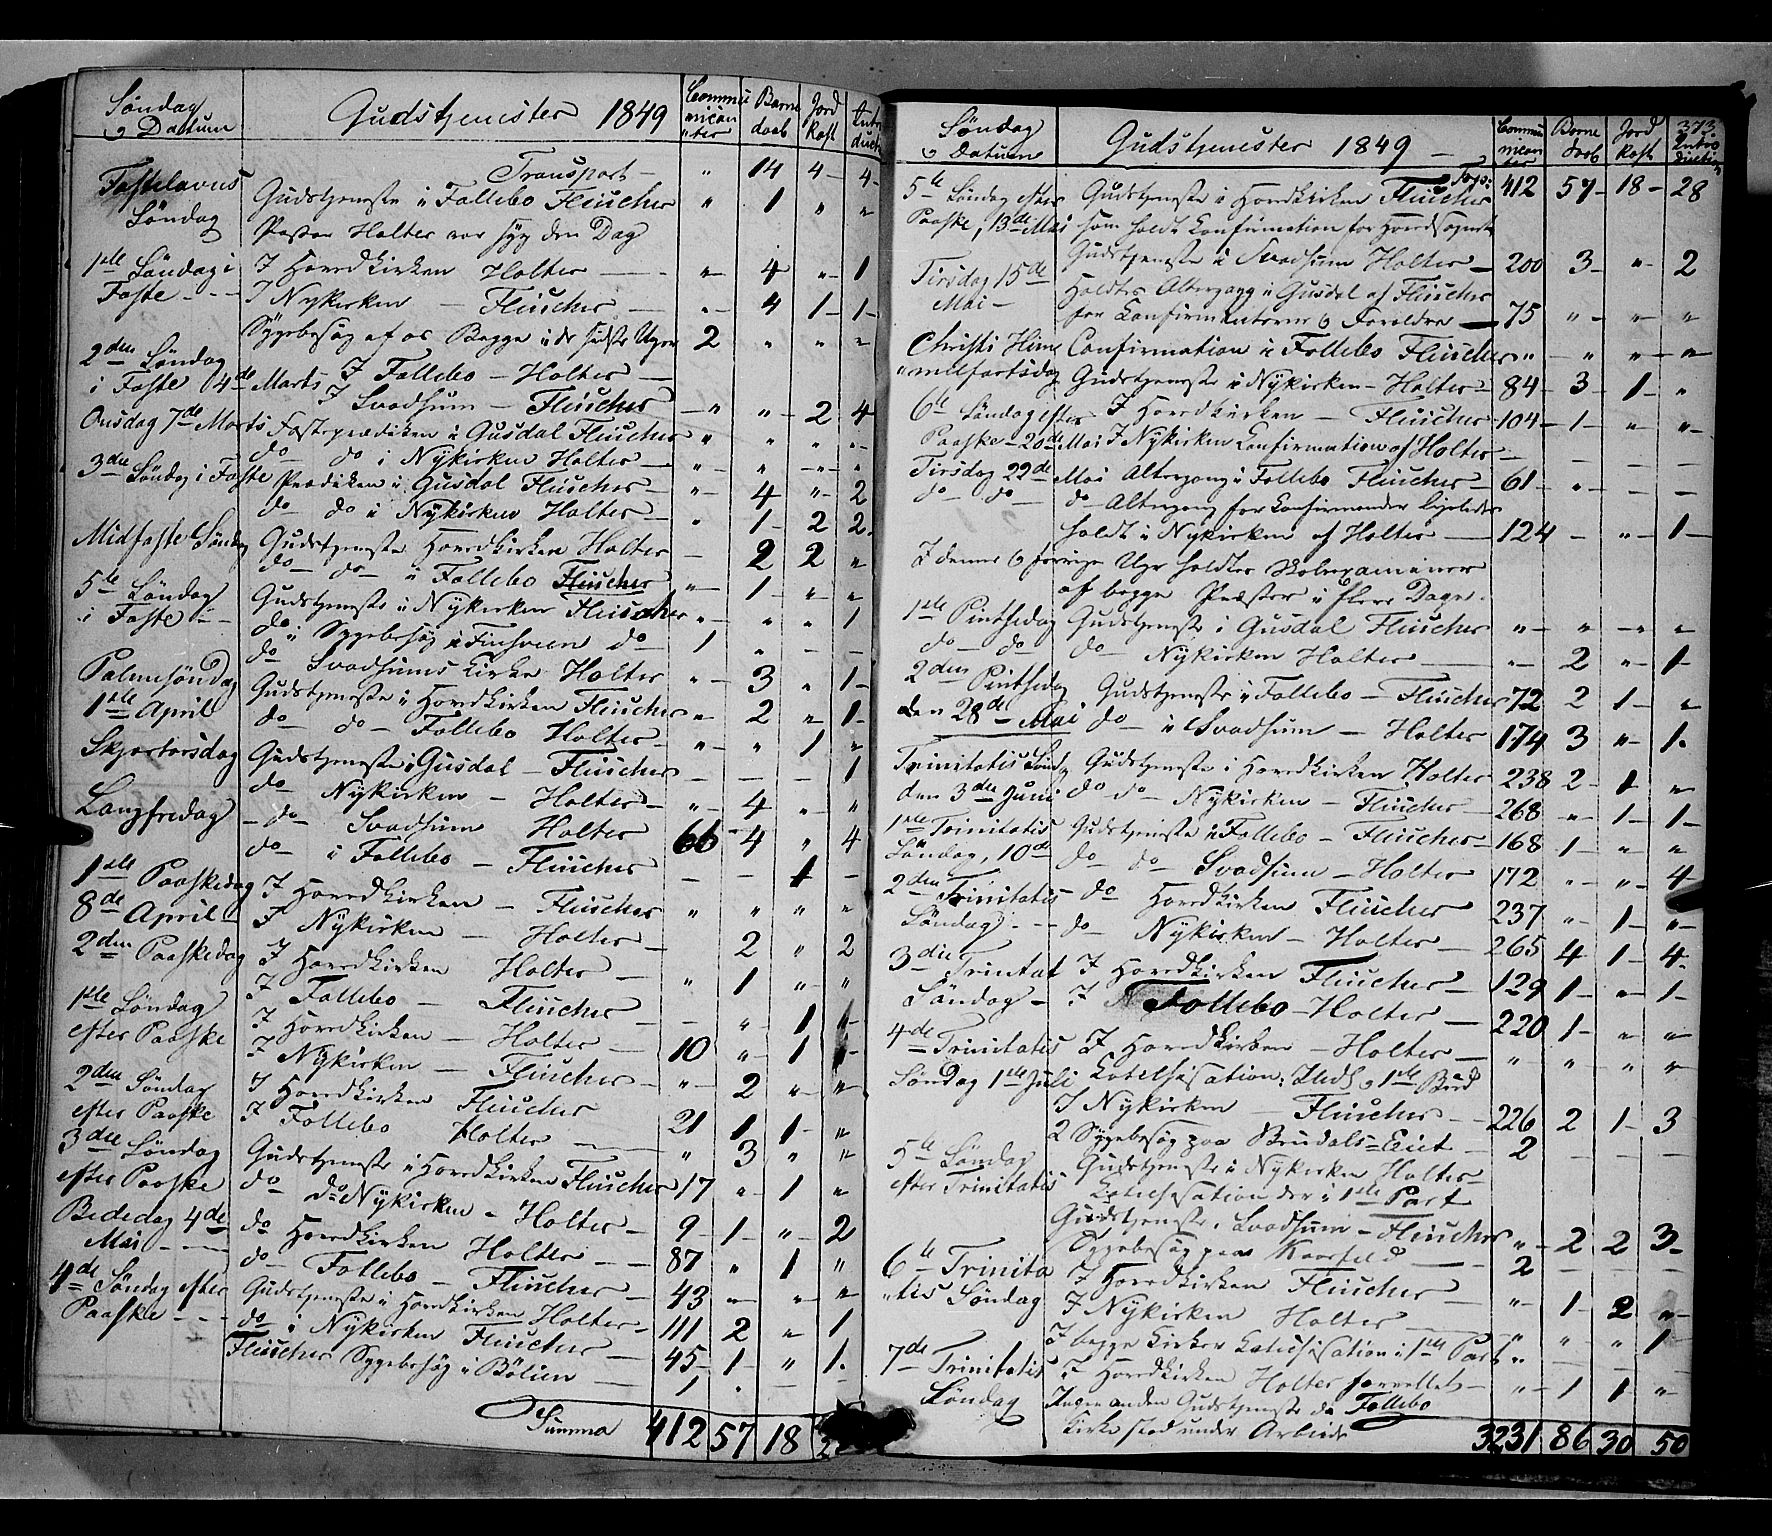 Søndag
o Datum
Gudstjenister 1849
Commu
nican
ter
Barne
daab
Jord
kast
Intro
duct
Transport – " 14 4 – 4 –
Fastelavns Gudstjeneste i Follebo Fleischer " 1 " "
Søndag Pastor Holter var syg den Dag
1ste Søndag i I Hovedkirken Holter – " – 4 – " – 1
Faste – – – I Nykirken – Fleischer – " – 4 1 – 1 –
Sygebesøg af os Begge i de sidste Uger 2 " " "
2den Søndag
i Faste 4de Marts I Follebo – Holter –
I Svadsum – Fleischer – " – " – 2 4 –
Onsdag 7de Marts Fasteprædiken i Gusdal Fleischer " " " "
do do i Nykirken Holter – " – " – " – "
3die Søndag i Faste Prædiken i Gusdal Fleischer – " – 4 " – 2
do do i Nykirken Holter – " 1 – 2 2.
Midfaste Søndag Gudstjeneste Hovedkirken Holter – 2 2 "
do do – i Follebo Fleischer " – 1 – " "
5te Søndag Gudstjeneste i Nykirken Fleischer " – " " 1
i Faste – – do i Sygebesøg i do – 1 " – –
do Svadsums Kirke Holter " – 3 " 1 –
Palmesøndag Gudstjeneste i Hovedkirken Fleischer " – 2 " – 1 –
1ste April do do – Follebo Holter – " – " 1 "
Skjertorsdag Gudstjeneste i Gusdal – Fleischer – – – 1
do Nykirken – Holter – " – 4 – " "
Langfredag – do – Svadsum Holter 66 – 4 " 4
do i Follebo – Fleischer – – 1 –
1ste Paaskedag I Hovedkirken – Fleischer " " " "
8de April – I Nykirken – Holter – 2 " 2
2den Paaskedag I Hovedkirken Holter – " 1 " "
I Follebo – Fleischer – " – 1
1ste Søndag I Hovedkirken – Holter – 10 " – 1
efter Paaske I Nykirken – Fleischer – " – 2 " – "
2den Søndag I Hovedkirken Fleischer 21 1 1 – "
efter Paaske I Follebo Holter – " 3 " "
3die Søndag Gudstjeneste i Hovedkirken Fleischer 17 " – 1 – "
efter Paaske do do Nykirken – Holter – 9 – 1 – " – 2
Bededag 4de do Hovedkirken Holter – – 87 " 1 "
Mai – – – do – Follebo – Fleischer – 43 " – " – "
4de Søndag efter Gudstjeneste i Hovedkirken Holter – 111 2 " – 1
Paaske – – – do i Nykirken Fleischer – 45 – 1 – " 1.
Fleischer Sygebesøg i Bölien – 1 " – –
Summa 412 57 18 2
373.
Søndag
o Datum
Gudstjenister 1849 –
Commu
nican
ter
Barne
daab
Jord
kast
Intro
duction
5te Søndag efter Gudstjeneste i Hovedkirken Fleischer 412 57 – 18 – 28
Paaske, 13de Mai som holdt Confirmation for Hovedsognet
Gudstjeneste i Svadsum Holter – 200 3 – " – 2
Tirsdag 15de Holdtes Altergang i Gusdal af Fleischer
Mai – for Confirmanterne o Forældre – 75 " – " – "
Christi Him Confirmation i Follebo Fleischer " – " " – "
"melfartsdag Gudstjeneste i Nykirken – Holter – 84 – 3 – 1 – "
6te Søndag efter I Hovedkirken – Fleischer – 104 – 1 – " "
Paaske – 20de Mai I Nykirken Confirmation af Holter – – – –
Tirsdag 22de Mai Altergang i Follebo Fleischer – 61 – " – – –
do – do – do – Altergang for Confirmander ligeledes
holdt i Nykirken af Holter – 124 – " – 1 –
I denne o forrige Uge holdtes Skoleexaminer
af begge Præster i flere Dage.
1ste Pintsedag Gudstjeneste i Gusdal Fleischer " – " – " "
do – do – do – Nykirken Holter – " – 2 " – 1 –
2den Pintsedag Gudstjeneste i Follebo – Fleischer 72 2 1 – "
den 28de – Mai do – i Svadsum – Holter 174 3 " – 1.
Trinitatis Sønd Gudstjeneste i Hovedkirken Holter – 238 2 – 1 – "
den 3die Juni do do – Nykirken – Fleischer – 268 " – 1 – 1 –
1ste Trinitatis Gudstjeneste i Follebo – Fleischer – 168 1 – " "
Søndag, 10de do do – Svadsum – Holter 172 " – " – 4
2den Trinitatis do Hovedkirken Fleischer – 237 " – 1 – " –
Søndag – – do – Nykirken – Holter – 265 4 1 – 4.
3die Trinitat I Hovedkirken Fleischer – 129 1 – " – 1 –
Søndag – I Follebo – Holter – 220 1 – " "
4de Trinitatis I Hovedkirken – Holter – " " " "
Søndag 1ste Juli Catechisation: o 1ste
I Nykirken – Fleischer – – 226 2 1 – 3
2 Sygebesøg paa – 2 – – –
5te Søndag Gudstjeneste i Nykirken Holter –
efter Trinitatis Catechisation der i 1ste Part
Gudstjeneste i Svadsum – Fleischer " – 2 2 3 –
Sygebesøg paa – 2 – – –
6te Trinita I Hovedkirken Fleischer – " – 1 – 2 " –
"tis Søndag I Nykirken Holter – " " " 1
I begge Kirker Catechisation i 1ste Part " –
7de Trinitatis I Hovedkirken Holter – " – 1 1 " –
Søndag Ingen anden Gudstjeneste da Follebo
Kirke stod under Arbeide 3231 86 30 50